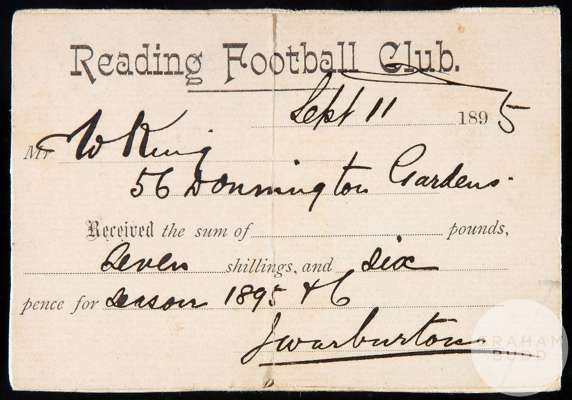 Reading Football Club.
Sept 11 1895
Mr W King
56 Donnington Gardens.
Received the sum of pounds,
seven shillings, and six
pence for season 1895 & 6
J Warburton
GRAHAM
BUDD